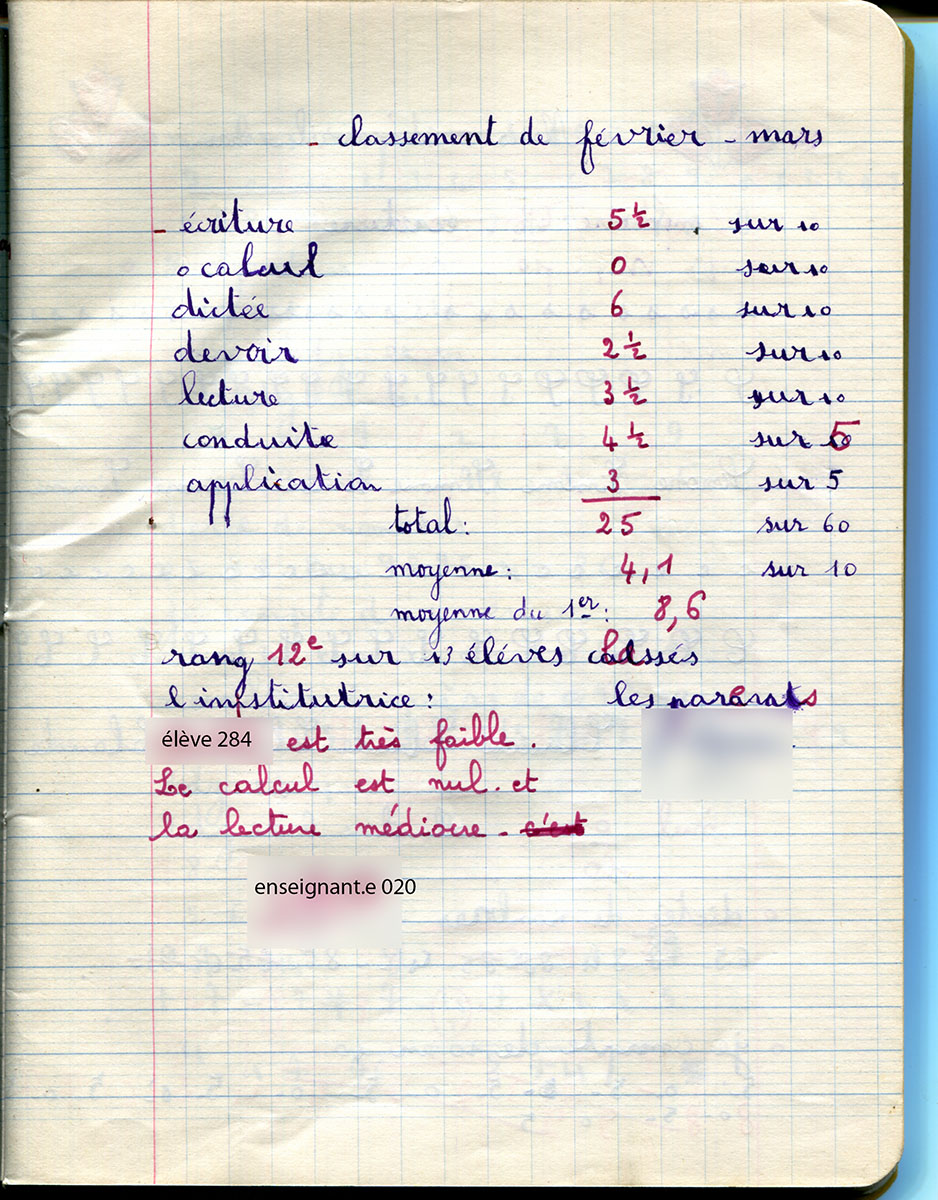 - classement de février - mars
- écriture 5 ½ sur 10
o calcul 0 sur 10
dictée 6 sur 10
devoir 2 ½ sur 10
lecture 3 ½ sur 10
conduite 4 ½ sur 5
application 3 sur 5
total: 25 sur 60
moyenne: 4,1 sur 10
moyenne du 1er: 8,6
rang 12e sur 13 élèves classés
l'institutrice: les parents
élève 284 est très faible.
Le calcul est nul. et
la lecture médiocre. c'est
enseignant.e 020